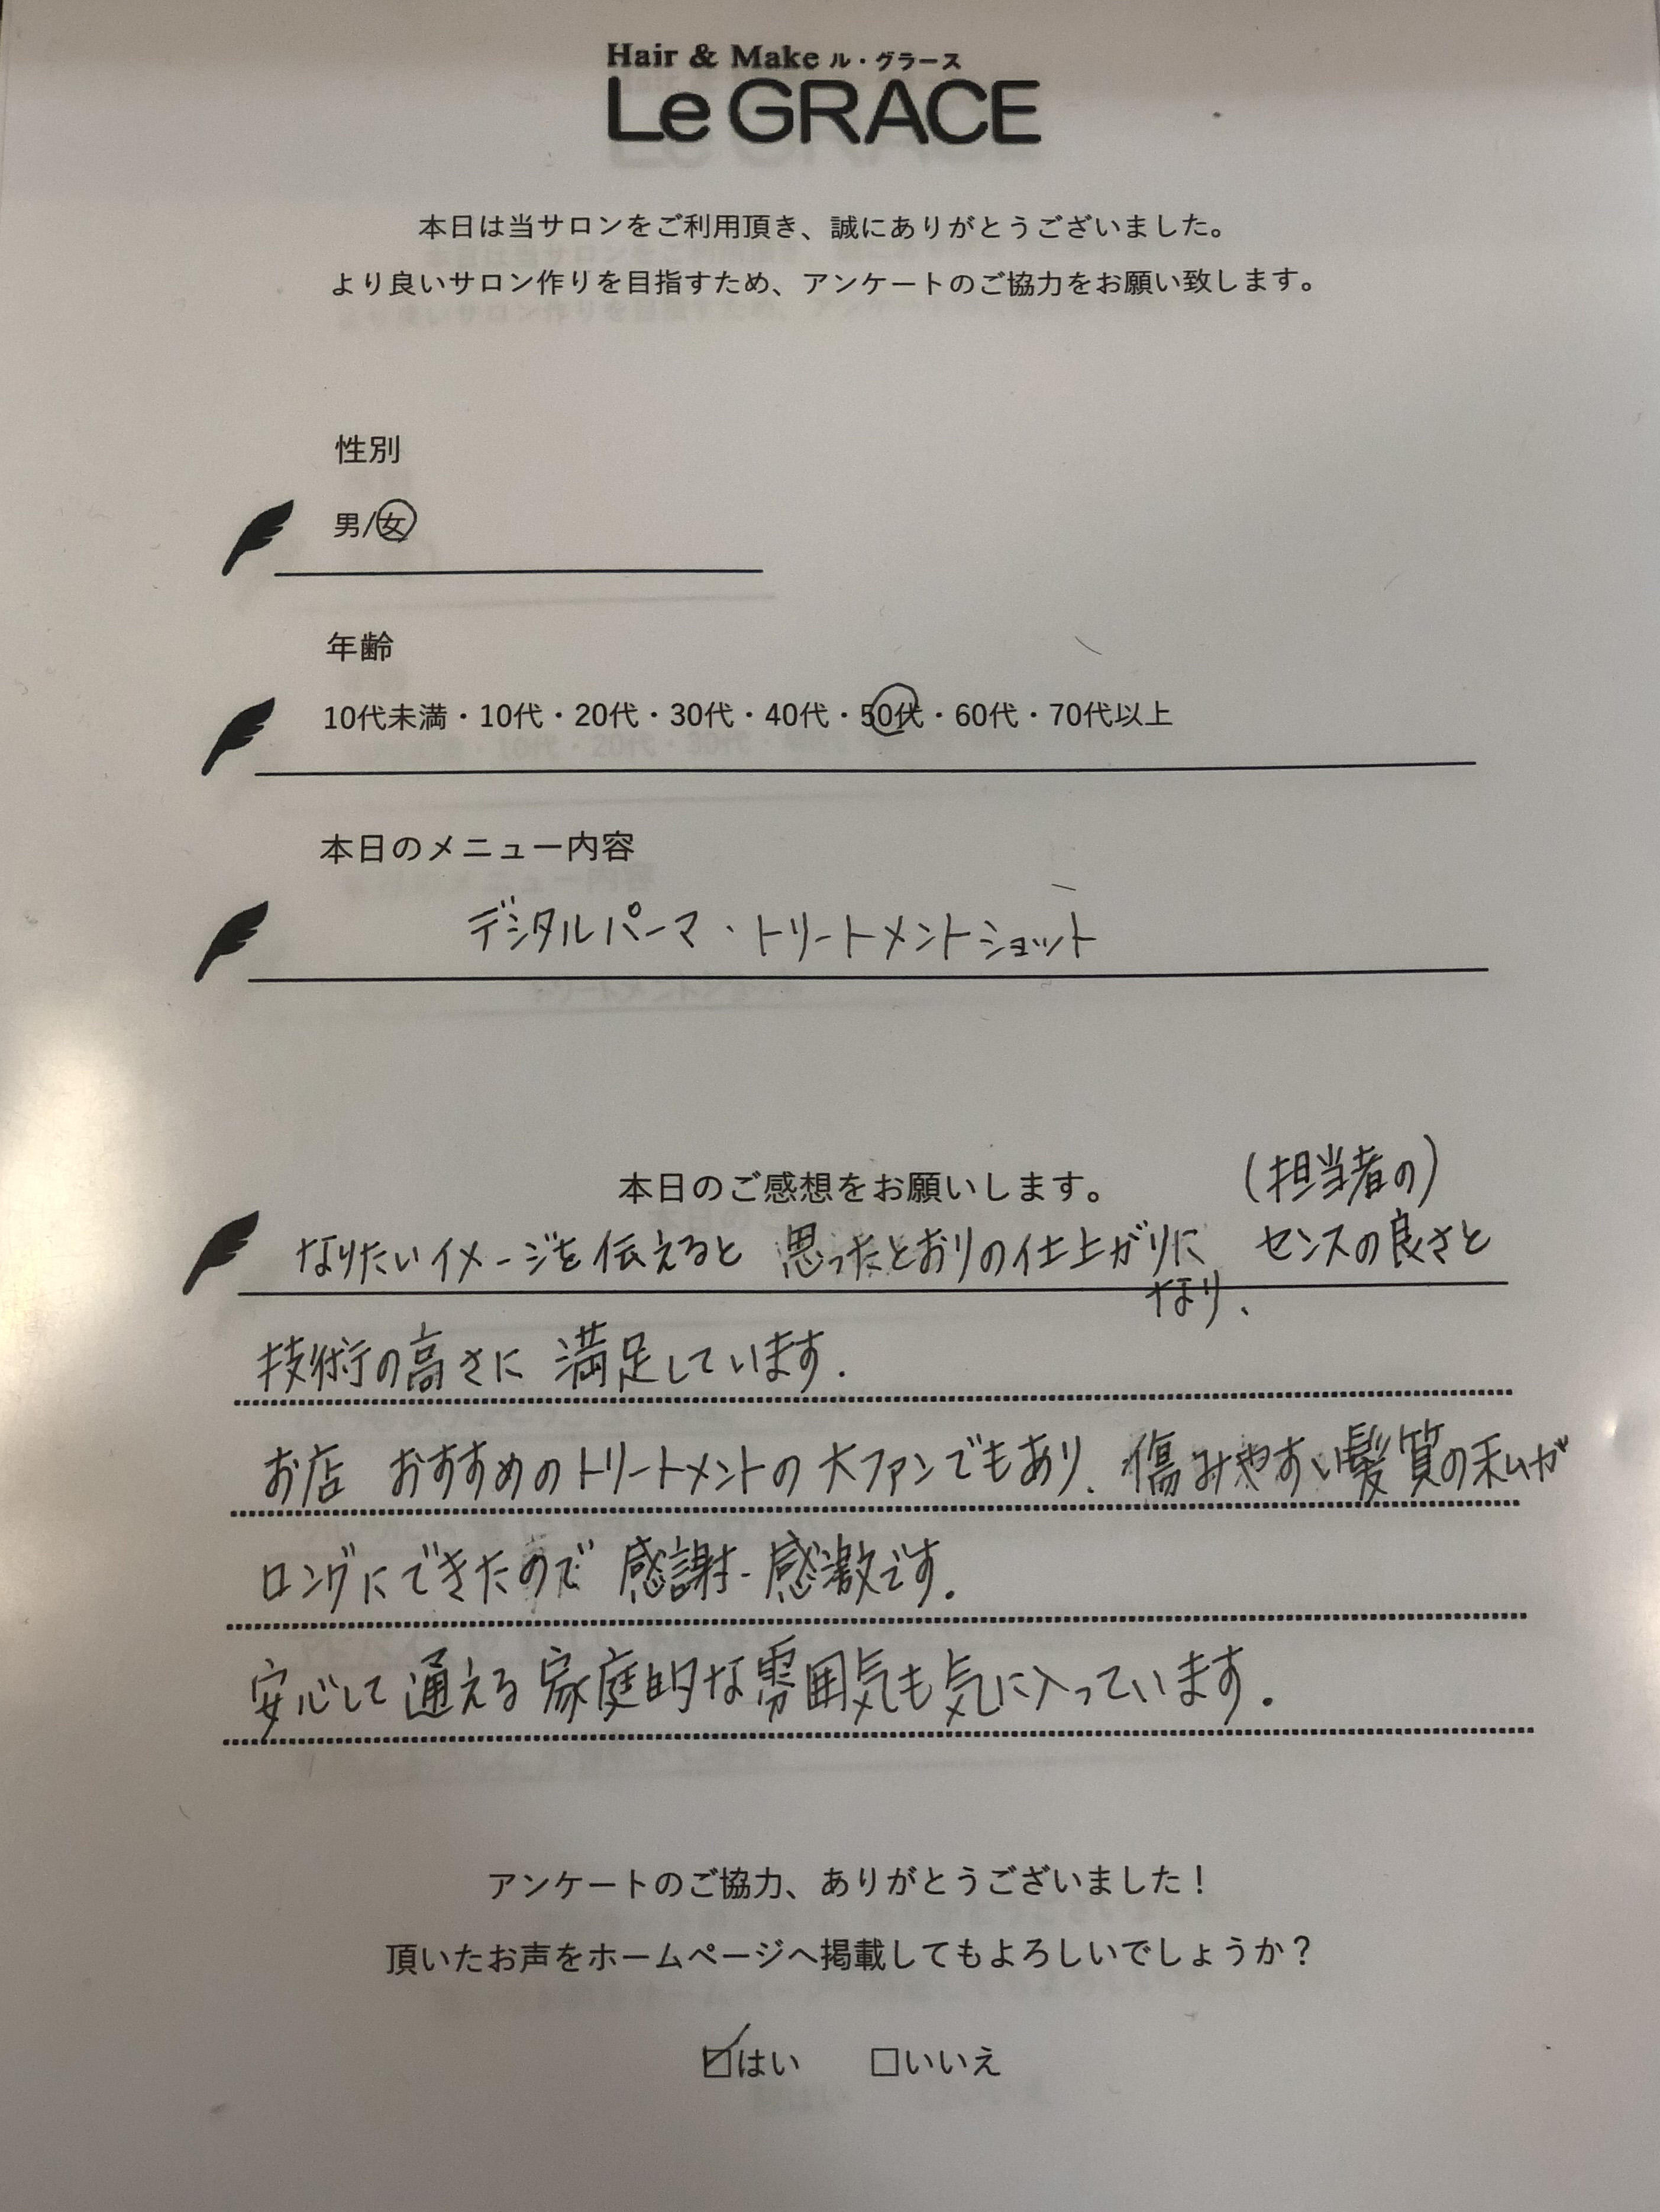 Hair & Make ル・グラース
Le GRACE
本日は当サロンをご利用頂き、誠にありがとうございました。
より良いサロン作りを目指すため、アンケートのご協力をお願い致します。
性別
男/女
年齢
10代未満・10代・20代・30代・40代・50代・60代・70代以上
本日のメニュー内容
デジタルパーマ・トリートメントショット
本日のご感想をお願いします。
(担当者の)
なりたいイメージを伝えると 思ったとおりの仕上がりに センスの良さと
なり、
技術の高さに 満足しています.
お店 おすすめのトリートメントの大ファンでもあり、傷みやすい髪質の私が
ロングにできたので 感謝・感激です.
安心して通える家庭的な雰囲気も気に入っています.
アンケートのご協力、ありがとうございました！
頂いたお声をホームページへ掲載してもよろしいでしょうか？
☑はい □いいえ